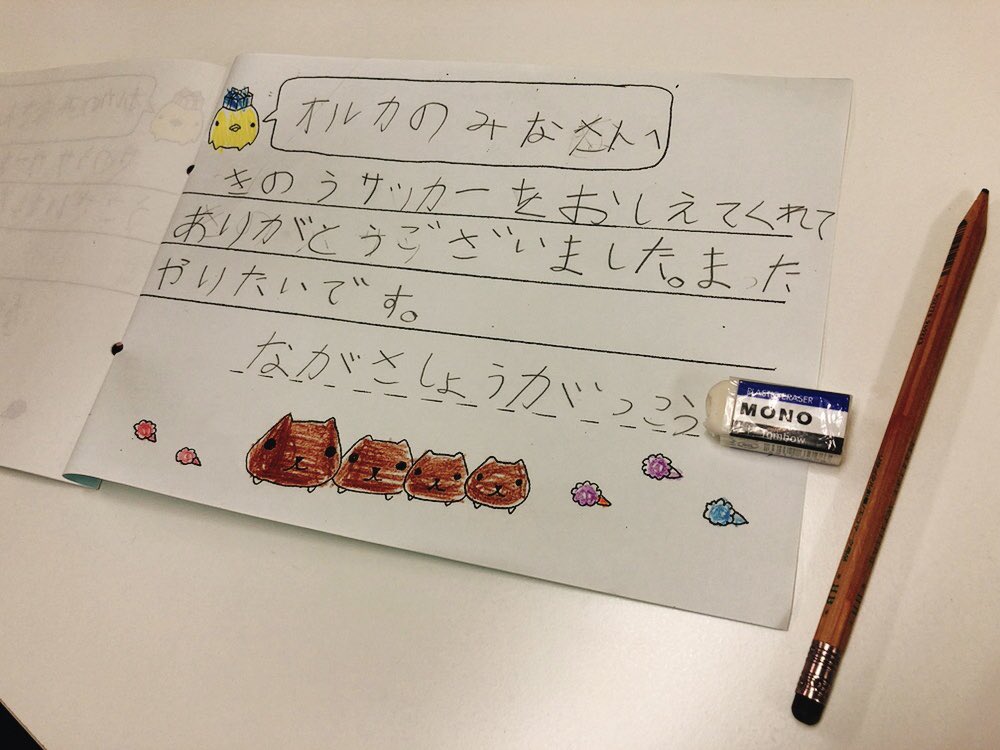 オルカのみなさんへ
きのうサッカーをおしえてくれて
ありがとうございました。まった
やりたいです。
ながさしょうがっこう
PLASTIC ERASER
MONO
Tombow